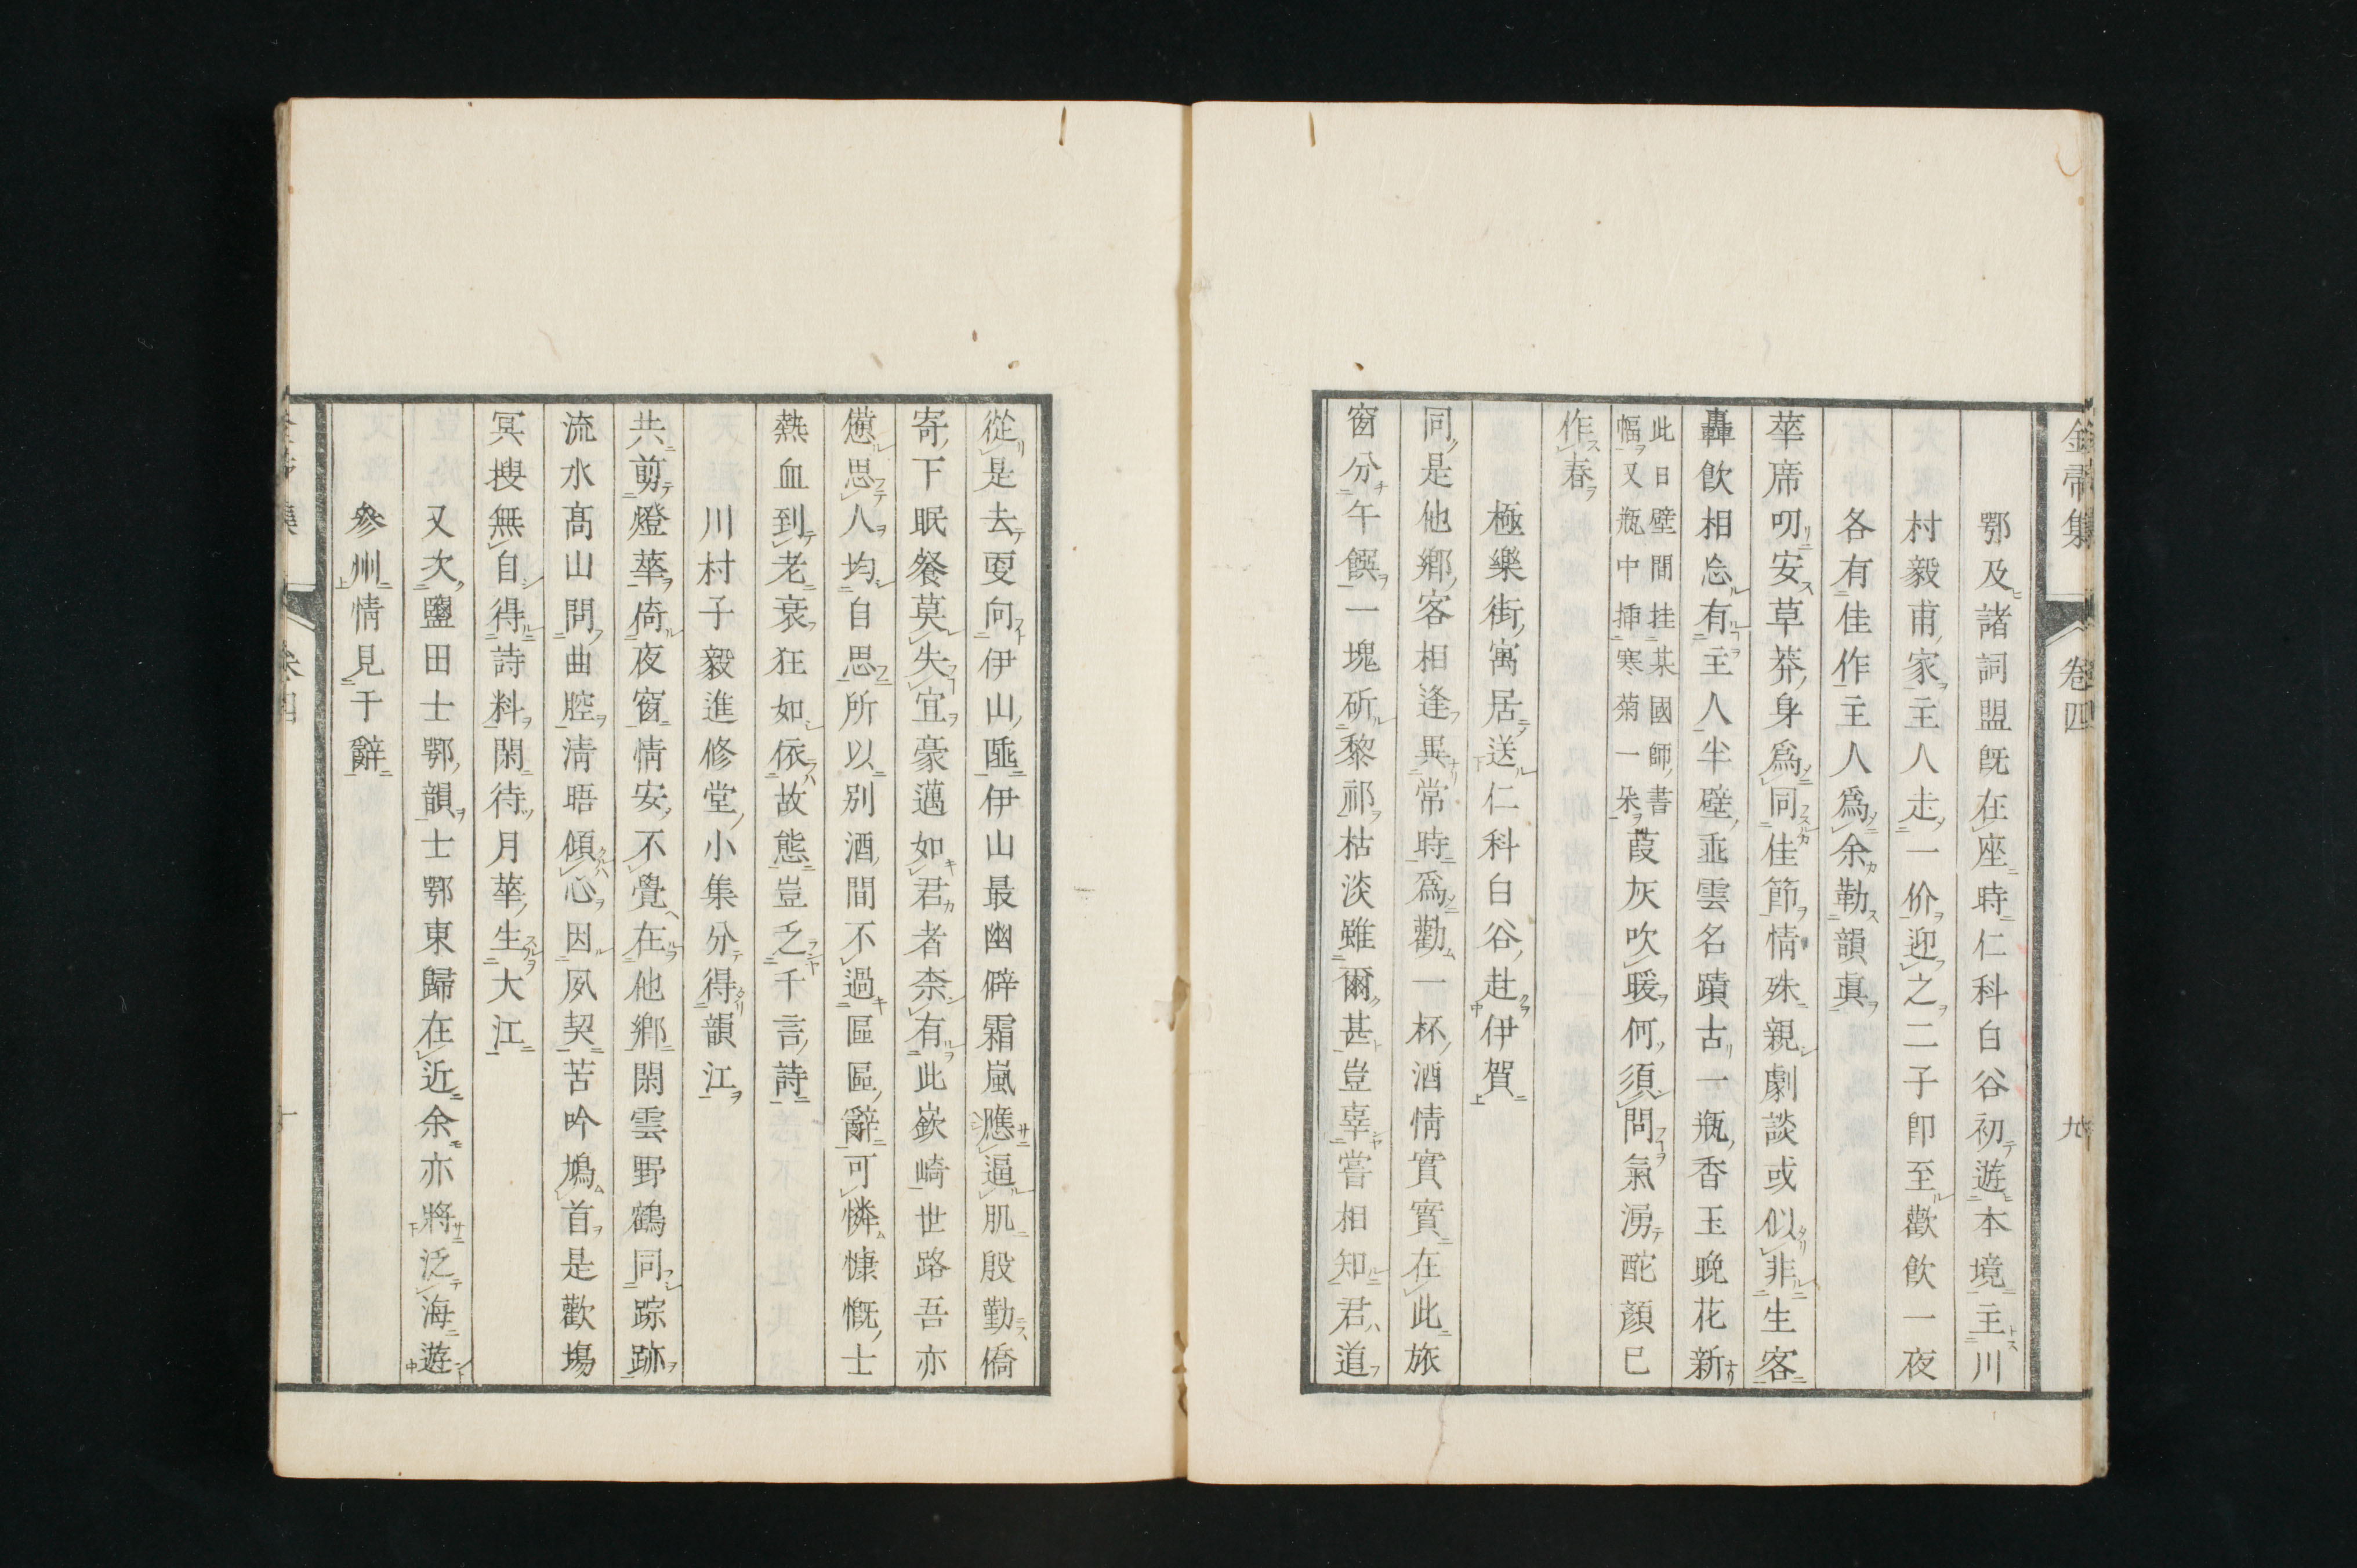 金帚集 卷四 九
鄂及諸詞盟既在座時仁科白谷初遊本境主川
村毅甫家主人走一价迎之二子卽至歡飮一夜
各有佳作主人爲余勒韻眞
華席叨安草莽身爲同佳節情殊親劇談或似非生客
轟飮相忘有主人半壁乖雲名蹟古一瓶香玉晩花新
此日壁間挂某國師書
幅又瓶中插寒菊一朶
葭灰吹暖何須問氣湧酡顏已
作春
極樂街寓居送仁科白谷赴伊賀
同是他鄕客相逢異常時爲勸一杯酒情實實在此旅
窗分午饌一塊斫黎祁枯淡雖爾甚豈辜嘗相知君道
從是去更向伊山陲伊山最幽僻霜嵐應逼肌殷勤僑
寄下眠餐莫失宜豪邁如君者柰有此嶔崎世路吾亦
憊思人均自思所以別酒間不過區區辭可憐慷慨士
熱血到老衰狂如依故態豈乏千言詩
川村子毅進修堂小集分得韻江
共剪燈華倚夜窗情安不覺在他鄕閑雲野鶴同踪跡
流水高山問曲腔淸晤傾心因夙契苦吟鳩首是歡塲
冥搜無自得詩料閑待月華生大江
又次鹽田士鄂韻士鄂東歸在近余亦將泛海遊
參州情見于辭
卷四